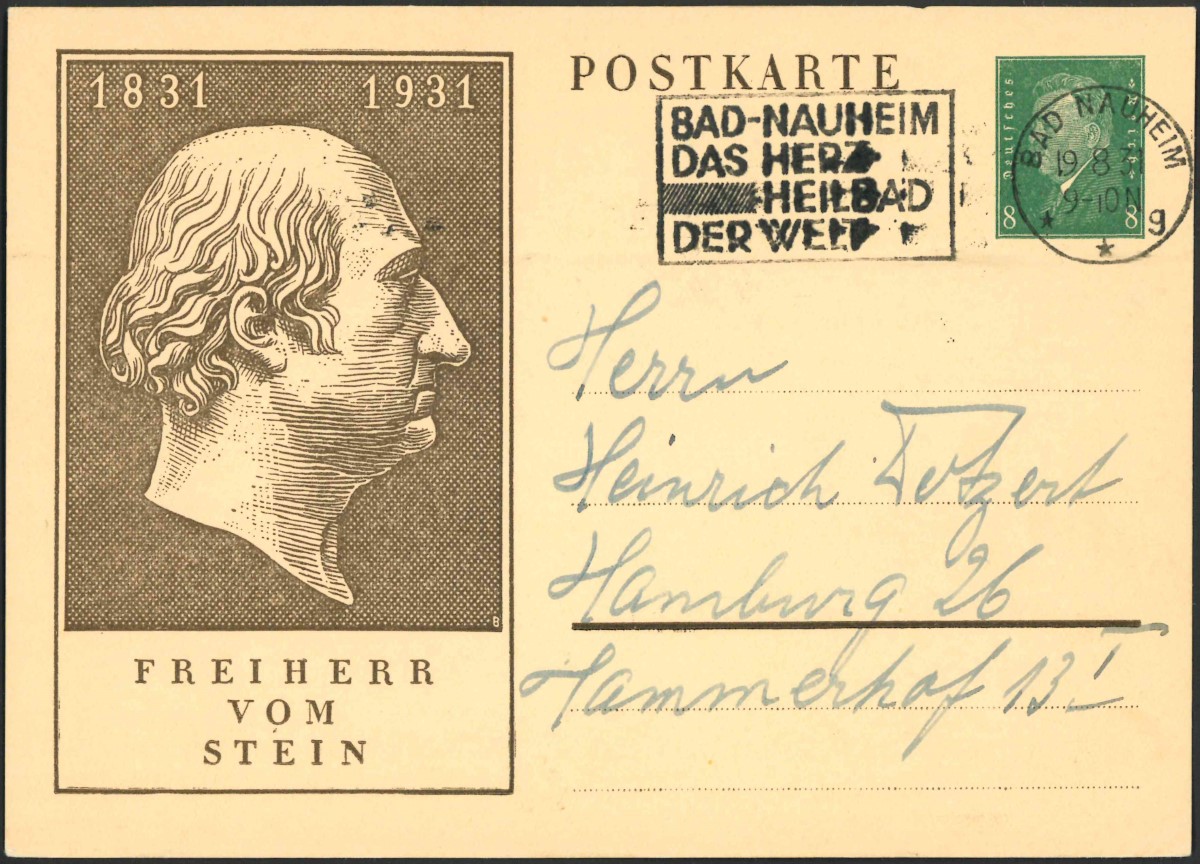 1831 1931
FREIHERR
VOM
STEIN
B
POSTKARTE
BAD-NAUHEIM
DAS HERZ
HEILBAD
DER WELT
Deutsches
8 8
BAD NAUHEIM
19.8.31
9-10 N
g
Herrn
Heinrich Dotzert
Hamburg 26
Hammerhof 13 I